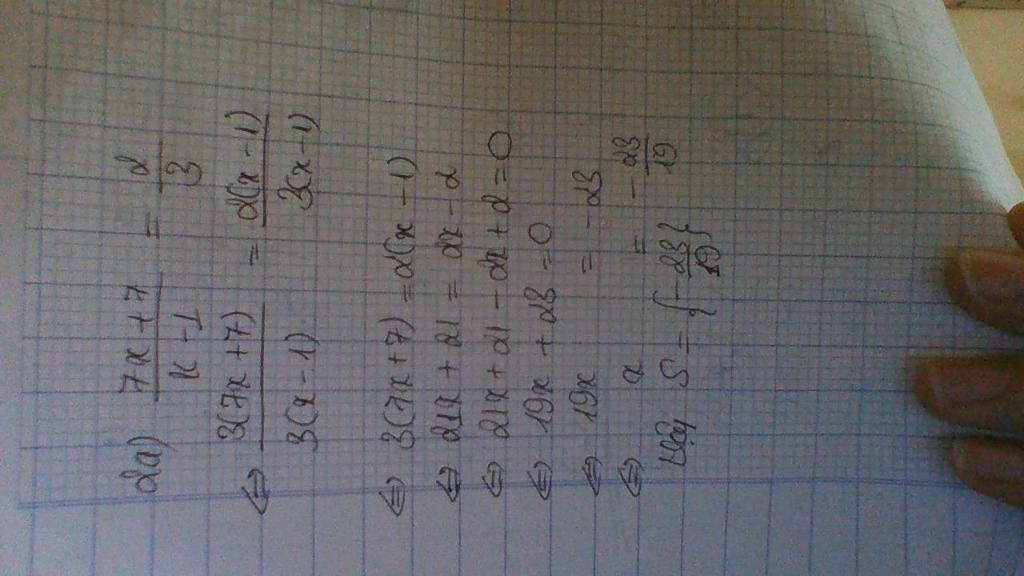 2a) (7x + 7)/(x - 1) = 2/3
⇔ 3(7x + 7)/3(x - 1) = 2(x - 1)/3(x - 1)
⇔ 3(7x + 7) = 2(x - 1)
⇔ 21x + 21 = 2x - 2
⇔ 21x + 21 - 2x + 2 = 0
⇔ 19x + 23 = 0
⇔ 19x = - 23
⇔ x = - 23/19
Vậy S = {- 23/19}